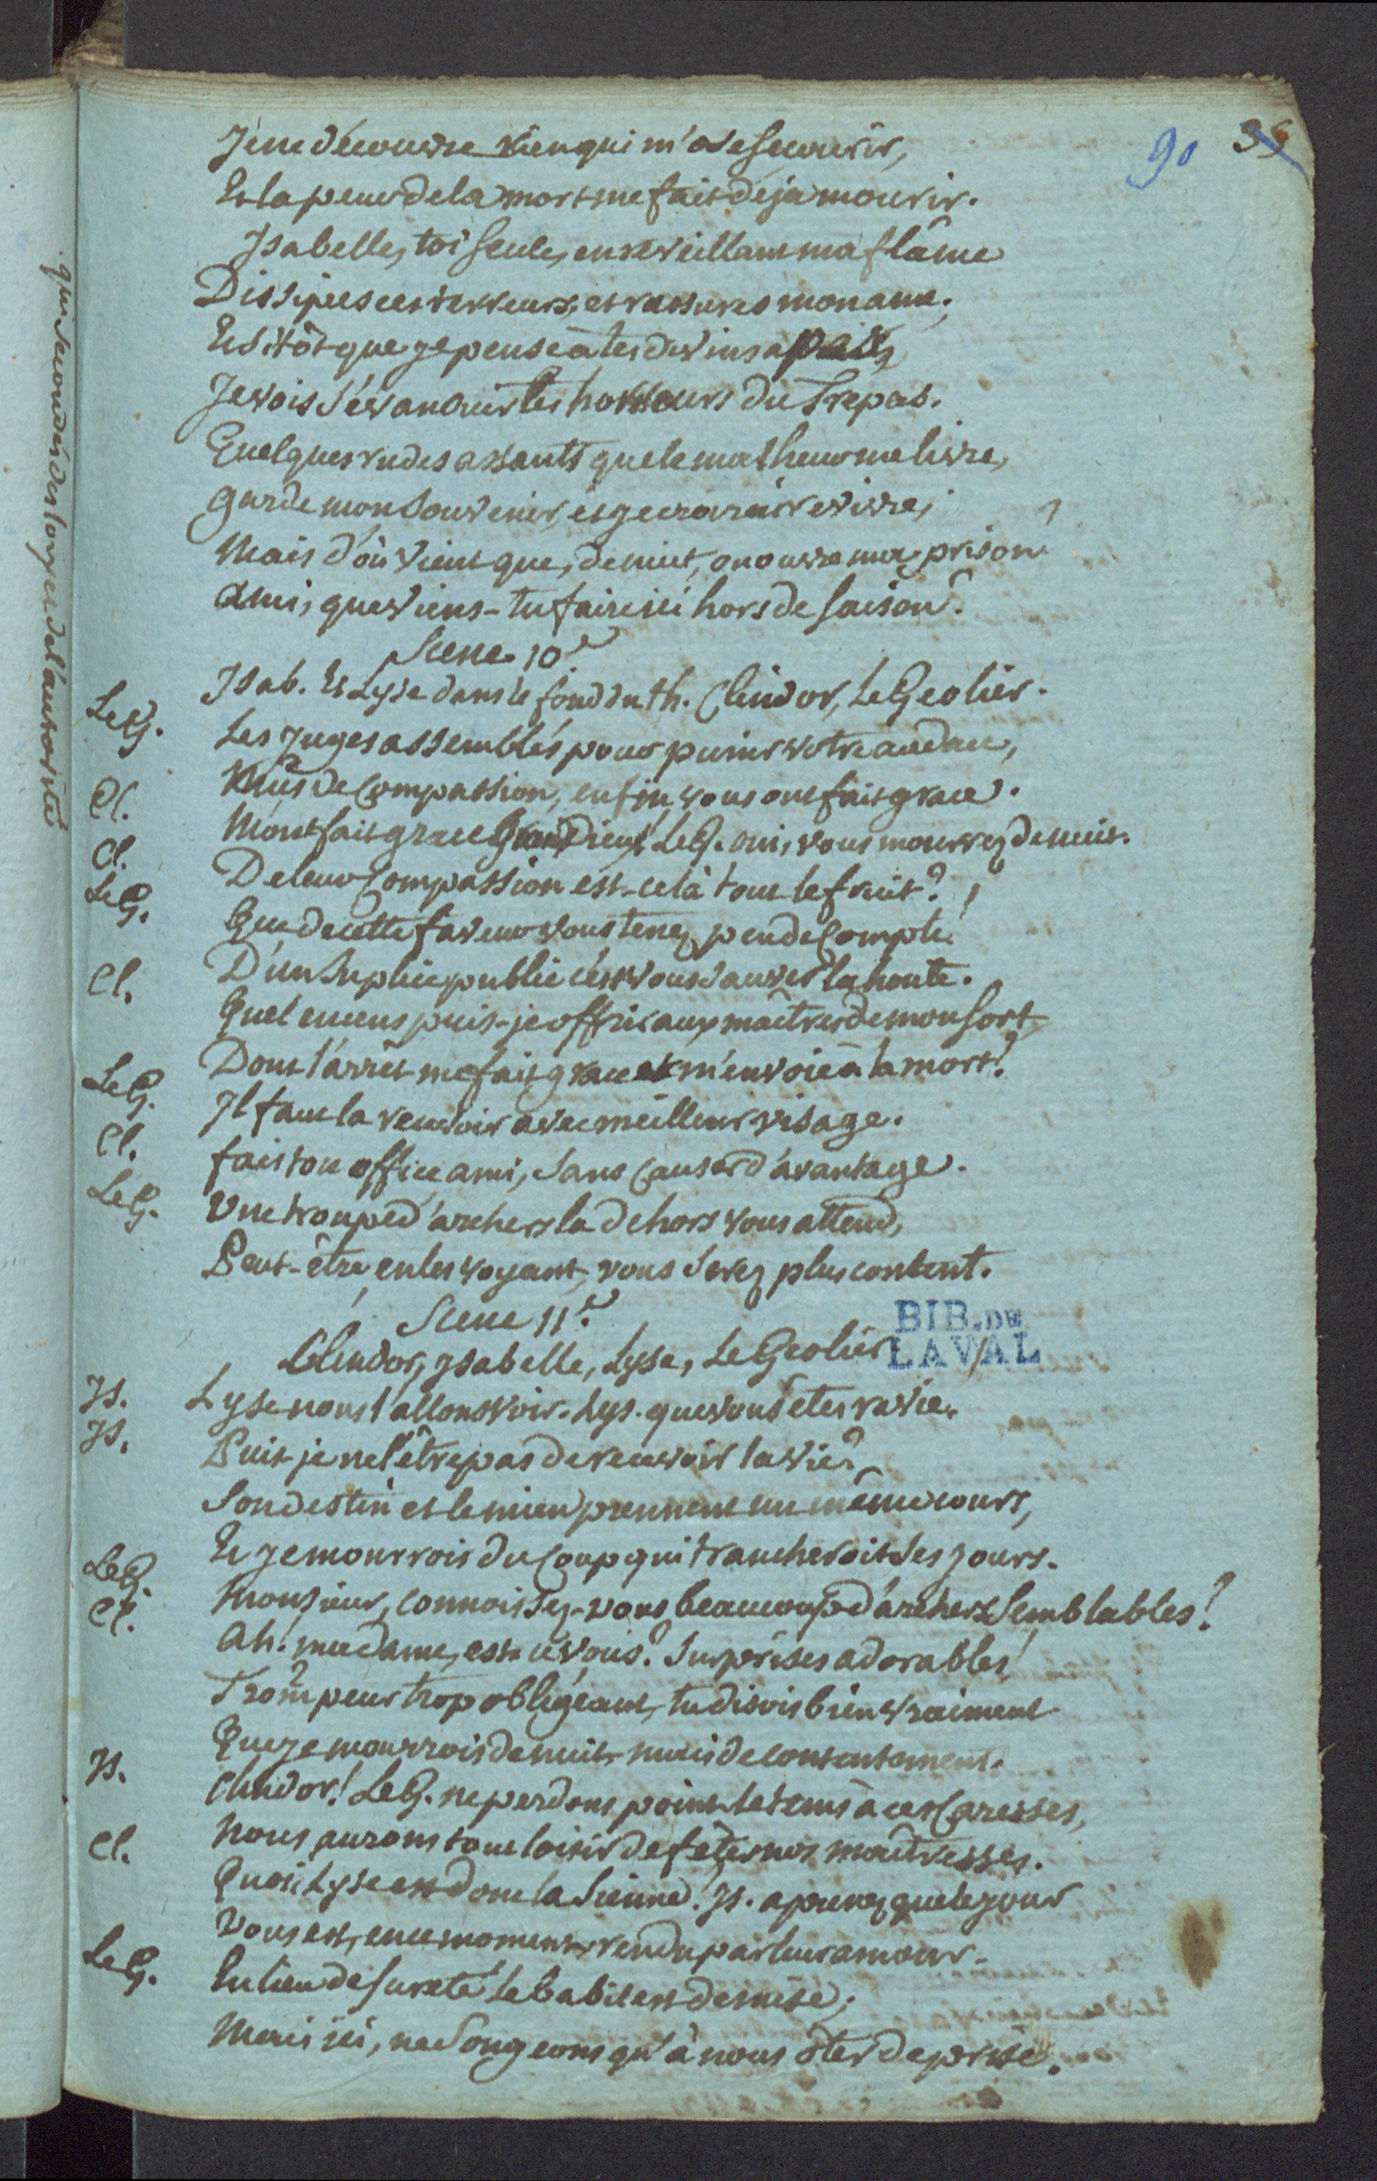 90 35
Je ne découvre rien qui m'ose secourir,
Et la peur de la mort me fait déja mourir.
Isabelle, toi seule, en réveillant ma flâme
Dissipes ces terreurs, et rassures mon ame,
Et sitôt que je pense à tes divins apas,
Je vois s'évanouir les horreurs du Trepas.
Quelques rudes assauts que le malheur me livre,
Garde mon souvenir, et je croirai revivre;
Mais d'où vient que, de nuit, on ouvre ma prison?
Ami, que viens-tu faire ici hors de saison?
Scene 10e
Isab. Et Lyse dans le fond du th. Clindor, Le Geolier.
Le G. Les Juges assemblés pour punir votre audace,
Mûs de Compassion, enfin vous ont fait grace.
Cl. M'ont fait grace Grand Dieux! Le G. oui, vous mourrez de nuit.
Cl. De leur Compassion est-ce là tout le fruit?
Le G. Que de cette faveur vous tenez peu de Compte!
D'un suplice public c'est vous sauver la honte.
Cl. Quel encens puis-je offrir aux maîtres de mon sort,
Dont l'arrêt me fait grace et m'envoie à la mort?
Le G. Il faut la recevoir avec meilleur visage.
Cl. fais ton office ami, sans Causer d'avantage.
Le G. Une troupe d'archers la dehors vous attend,
Peut-être, en les voyant, vous serez plus content.
Scene 11e
Clindor, ysabelle, Lyse, Le Geolier
BIB. DE
LAVAL
Is. Lyse nous l'allons voir. Lys. que vous êtes ravie.
Is. Puis je ne l'être pas de recevoir la vie?
Son destin et le mien prennent un même cours,
Et je mourrois du Coup qui trancheroit ses jours.
Le G. Monsieur, connoissez-vous beaucoup d'archers semblables?
Cl. Ah! madame, est-ce vous? Surprises adorables!
Trompeur trop obligeant, tu disois bien vraiment
Que je mourrois de nuit, mais de contentement.
Is. Clindor! Le G. ne perdons point le tems à ces Caresses,
Nous aurons tout loisir de fêter nos maîtresses.
Cl. Quoi, Lyse est donc la Sienne! Is. aprenez que le jour
Vous est, en ce moment, rendu par leur amour.
Le G. En lieu de sureté le babil est de mise;
Mais ici, ne songeons qu'à nous ôter de prise.
qui secondés des loix et de l'autorité